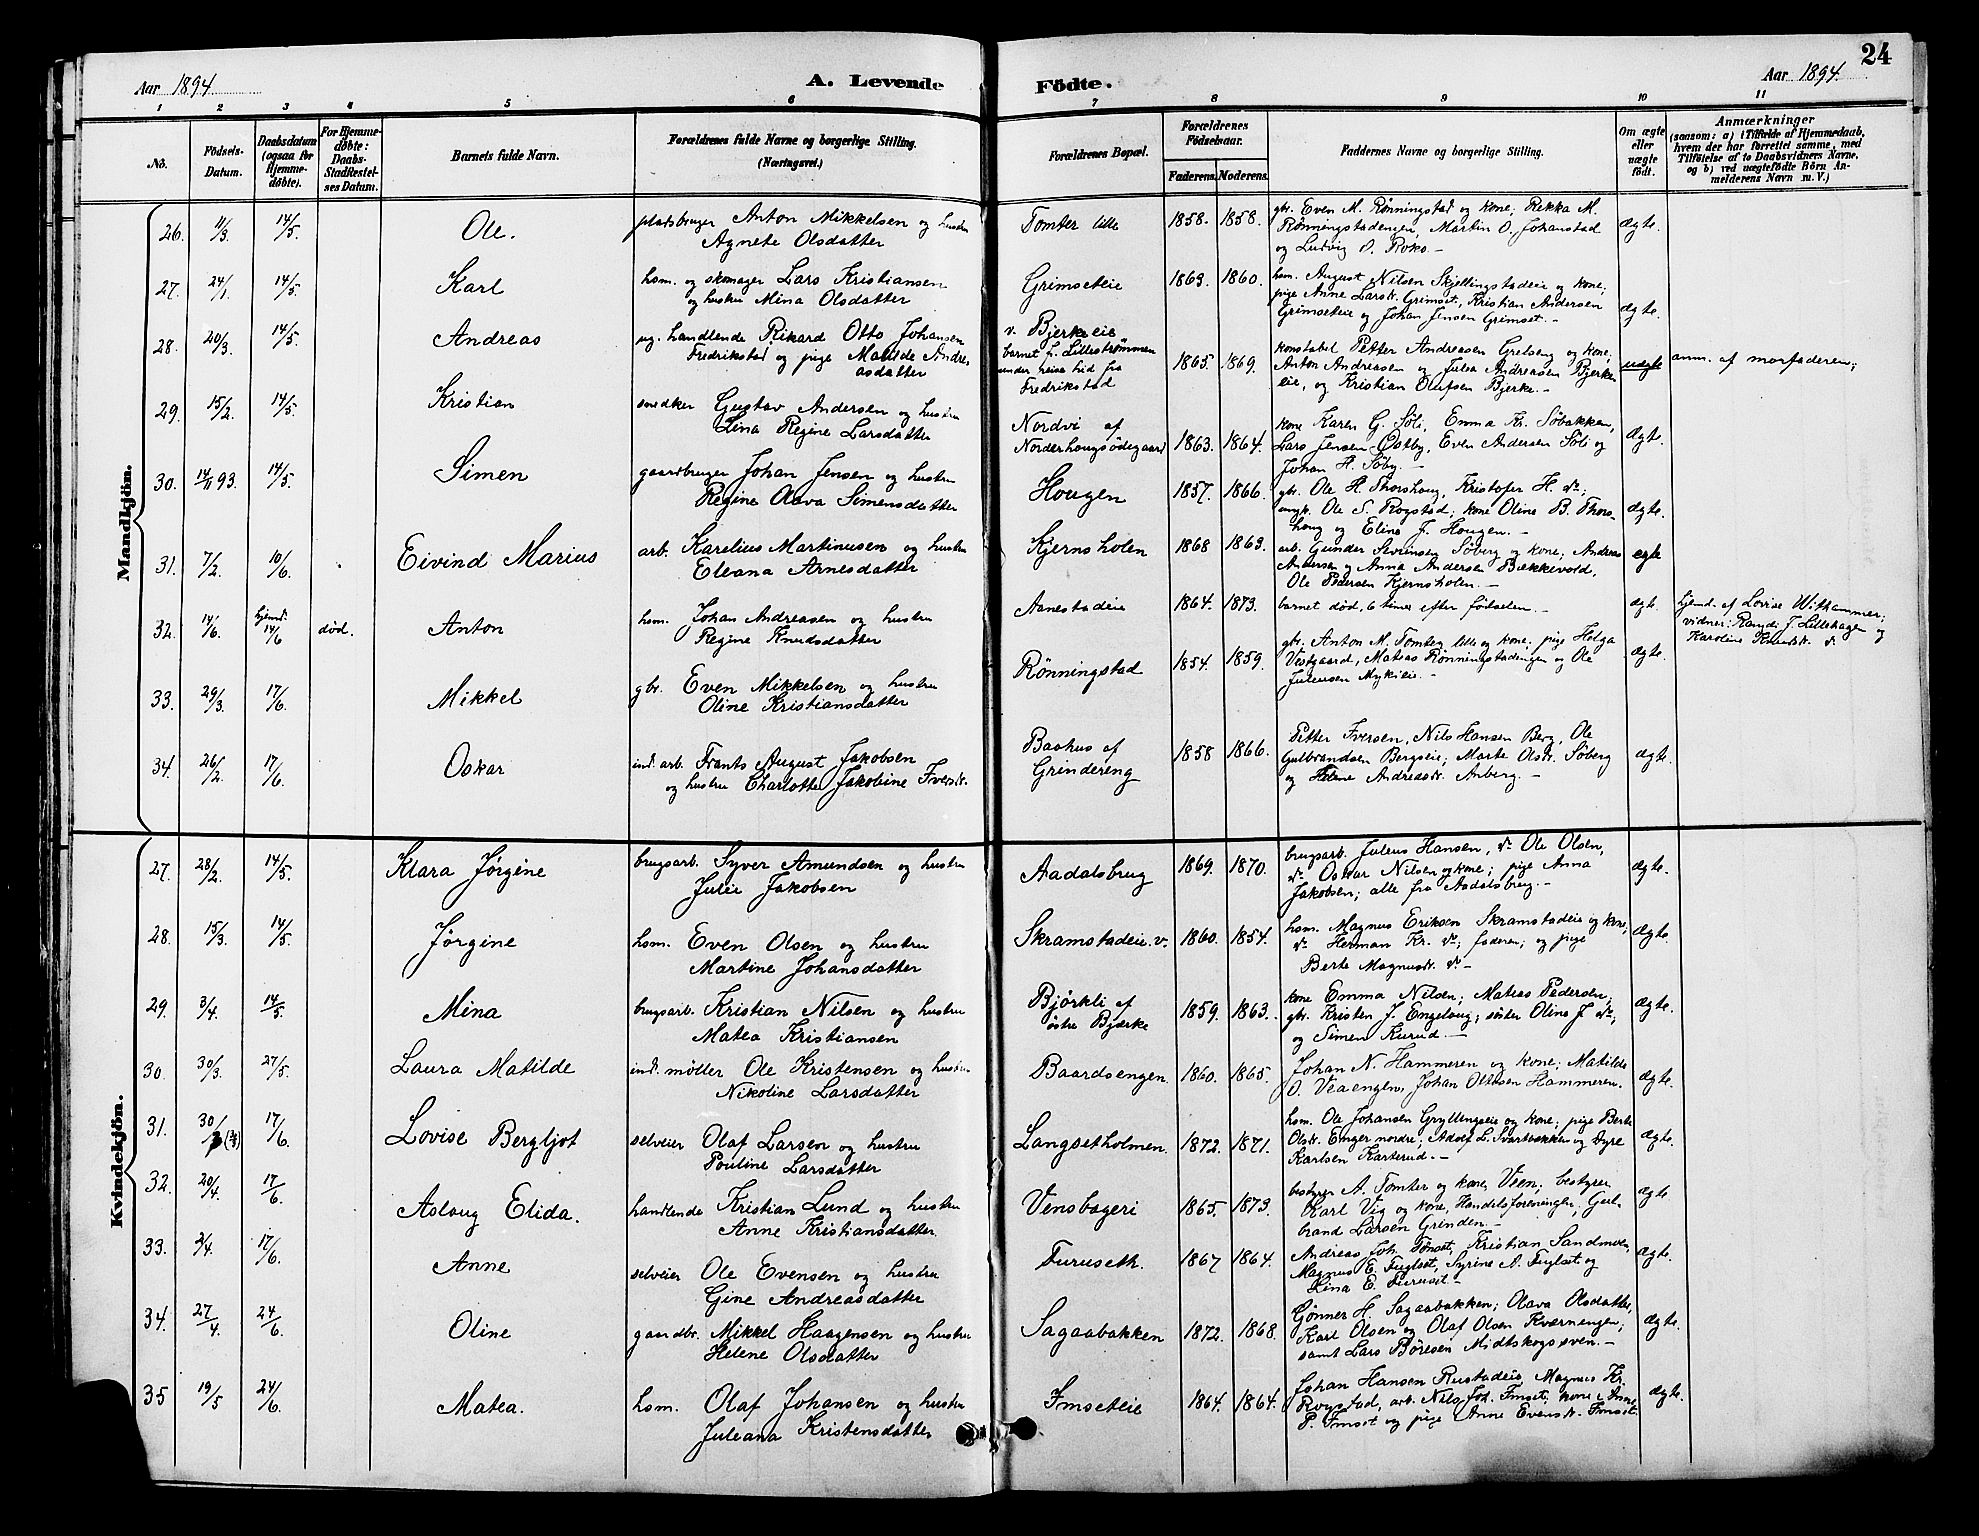 24
Aar 1894 A. Levende Födte. Aar 1894
1 2 3 4 5 6 7 8 9 10 11
No. Födsels-Datum. Daabsdatum (ogsaa for Hjemmedöbte). For Hjemmedöbte: Daabs-Stadfæstelses Datum. Barnets fulde Navn. Forældrenes fulde Navne og borgerlige Stilling. (Næringsvei.) Forældrenes Bopæl. Forældrenes Födselsaar. Faderens. Moderens. Faddernes Navne og borgerlige Stilling. Om ægte eller uægte födt. Anmærkninger (saasom: a) i Tilfælde af Hjemmedaab, hvem der har forrettet samme, med Tilföielse af to Daabsvidners Navne, og b) ved uægtefödte Börn Anmelderens Navn m. V.)
Mandkjön.
26. 11/3. 14/5. Ole. pladsbruger Anton Mikkelsen og hustru Agnete Olsdatter Tomter lille 1858. 1858. gbr. Even M. Rønningstad og kone; Rekka M. Rønningstadengen, Martin O. Johanstad og Ludvig O. Roko.— ægte.
27. 24/1. 14/5. Karl hsm. og skomager Lars Kristiansen og hustru Mina Olsdatter Grimseteie 1863. 1860. hsm. August Nilsen Skjellingstadeie og kone; pige Anne Larsdr. Grimset, Kristian Andersen Grimseteie og Johan Jensen Grimset.— ægte.
28. 20/3. 14/5. Andreas ug. handlende Rikard Otto Johansen Fredrikstad og pige Matilde Andreasdatter v. Bjerkeeie barnet f. Lillestrømmen under reise hid fra Fredrikstad 1865. 1869. konstabel Petter Andreasen Grelseng og kone; Anton Andreasen og Julea Andreasen Bjerkeeie, og Kristian Olufsen Bjerke.— uægte anm. af morfaderen;
29. 15/2. 14/5. Kristian snedker Gustav Andersen og hustru Lina Regine Larsdatter Nordvi af Norderhougsødegaard 1863. 1864. kone Karen G. Söli, Emma Kr. Söbakken, Lars Jensen Ostby, Even Andersen Söli og Johan H. Söby.— ægte.
30. 14/11 93. 14/5. Simen gaardbruger Johan Jensen og hustru Regine Olava Simensdatter Hougen 1857. 1866. gbr. Ole H. Thorshoug, Kristofer H. do; ungk. Ole S. Rogstad; kone Oline B. Thorshoug og Eline J. Hougen.— ægte.
31. 7/2. 10/6. Eivind Marius arb. Karelius Martinusen og hustru Eleana Arnesdatter Kjernsholen 1868 1863. arb. Gunder Severinsen Söberg og kone; Andreas Andersen og Anna Andersen Bækkevold, Ole Pedersen Kjernsholen.— egte
32. 14/6. hjemd. 14/6 død. Anton hsm. Johan Andreasen og hustru Regine Knudsdatter Aanestadeie 1864. 1873. barnet död, 6 timer efter fødselen.— ægt. hjemd. af Lovise Withammer; vidner: Randi J. Lillehagen og Karoline Knudsdr. do.
33. 29/3. 17/6. Mikkel gbr. Even Mikkelsen og hustru Oline Kristiansdatter Rönningstad 1854. 1859. gbr. Anton M. Tomter lille og kone; pige Helga Vestgaard, Matias Rønningstadengen og Ole Juleusen Mykleie.— ægte.
34. 26/2. 17/6. Oskar ind. arb. Frants August Jakobsen og hustru Charlotte Jakobine Iversdr. Baahus af Grindereng 1858 1866. Petter Iversen, Nils Hansen Berg, Ole Gulbrandsen Bergseie; Marte Olsdr. Söberg og Helene Andreasdr. Anberg.— ægte.
Kvindekjön.
27. 28/2. 14/5. Klara Jørgine brugsarb. Syver Amundsen og hustru Julie Jakobsen Aadalsbrug 1869. 1870. brugsarb. Juleus Hansen, do Ole Olsen, do Oskar Nilsen og kone; pige Anna Jakobsen; alle fra Aadalsbrug.— ægte.
28. 15/3. 14/5. Jørgine hsm. Even Olsen og hustru Martine Johansdatter Skramstadeie. v. 1860. 1854. hsm. Magnus Eriksen Skramstadeie og kone, do Herman Kr. do; faderen; og pige Berte Magnusdr. do— ægte.
29. 3/4. 14/5. Mina brugsarb. Kristian Nilsen og hustru Matea Kristiansen Bjørkli af østre Bjærke 1859. 1863. kone Emma Nilsen; Matias Pedersen; gbr. Kristen J. Engeloug; søster Oline J. do; og Simen Kurud.— ægte.
30. 30/3. 27/5. Laura Matilde ind. møller Ole Kristensen og hustru Nikoline Larsdatter Baardsengen 1860. 1865. Johan N. Hammeren og kone; Matilde O. Veaengen, Johan Ottosen Hammeren. ægte.
31. 30/3 17/6. Lovise Bergljot selveier Olaf Larsen og hustru Pouline Larsdatter Langsetholmen. 1872. 1871. hsm. Ole Johansen Gryllingseie og kone; pige Berte Olsdr. Enger nordre; Adolf L. Svartbækken og Syre Karlsen Karterud.— ægte.
32. 20/4. 17/6. Aslaug Elida. handlende Kristian Lund og hustru Anne Kristiansdatter. Vensbageri 1865. 1873. bestyrer A. Tomter og kone, Veen; bestyrer Karl Vig og kone, Handelsforeningen; Gulbrand Larsen Grinden.— ægte.
33. 2/4. 17/6. Anne selveier Ole Evensen og hustru Gine Andreasdatter Furuseth. 1867 1864. Andreas Joh. Tönset, Kristian Sandmoen, Magnus E. Fuglset, Syrine A. Fuglset og Lina E. Furuset.— ægte.
34. 27/4. 24/6. Oline gaardbr. Mikkel Haagensen og hustru Helene Olsdatter Sagaabakken 1872. 1868. Gønner H Sagaabakken; Olava Olsdatter, Karl Olsen og Olaf Olsen Kværnengen; samt Lars Børesen Midtskogsøven.— ægte.
35 19/5 24/6. Matea. hsm. Olaf Johansen og hustru Juleana Kristensdatter Imseteie 1864. 1864. Johan Hansen Rustadeie, Magnus Kr. Rogstad, arb. Nils Joh. Imset, kone Anne P. Imset og pige Anne Evensdr. Imset. ægte.